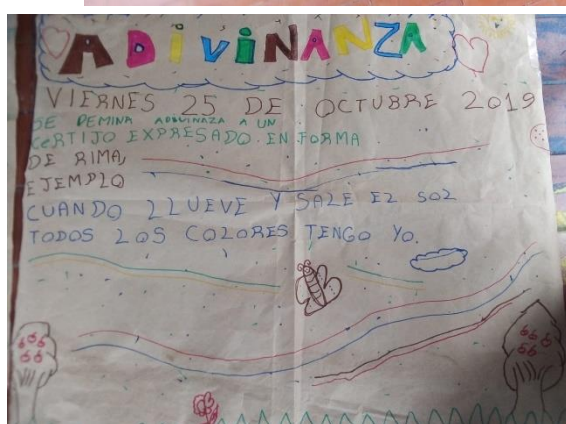 ADIVINANZA
VIERNES 25 DE OCTUBRE 2019
SE DEMINA ADGVINAZA A UN
CERTIJO EXPRESADO EN FORMA
DE RIMA,
EJEMPLO
CUANDO LLUEVE Y SALE EL SOL
TODOS LOS COLORES TENGO YO.